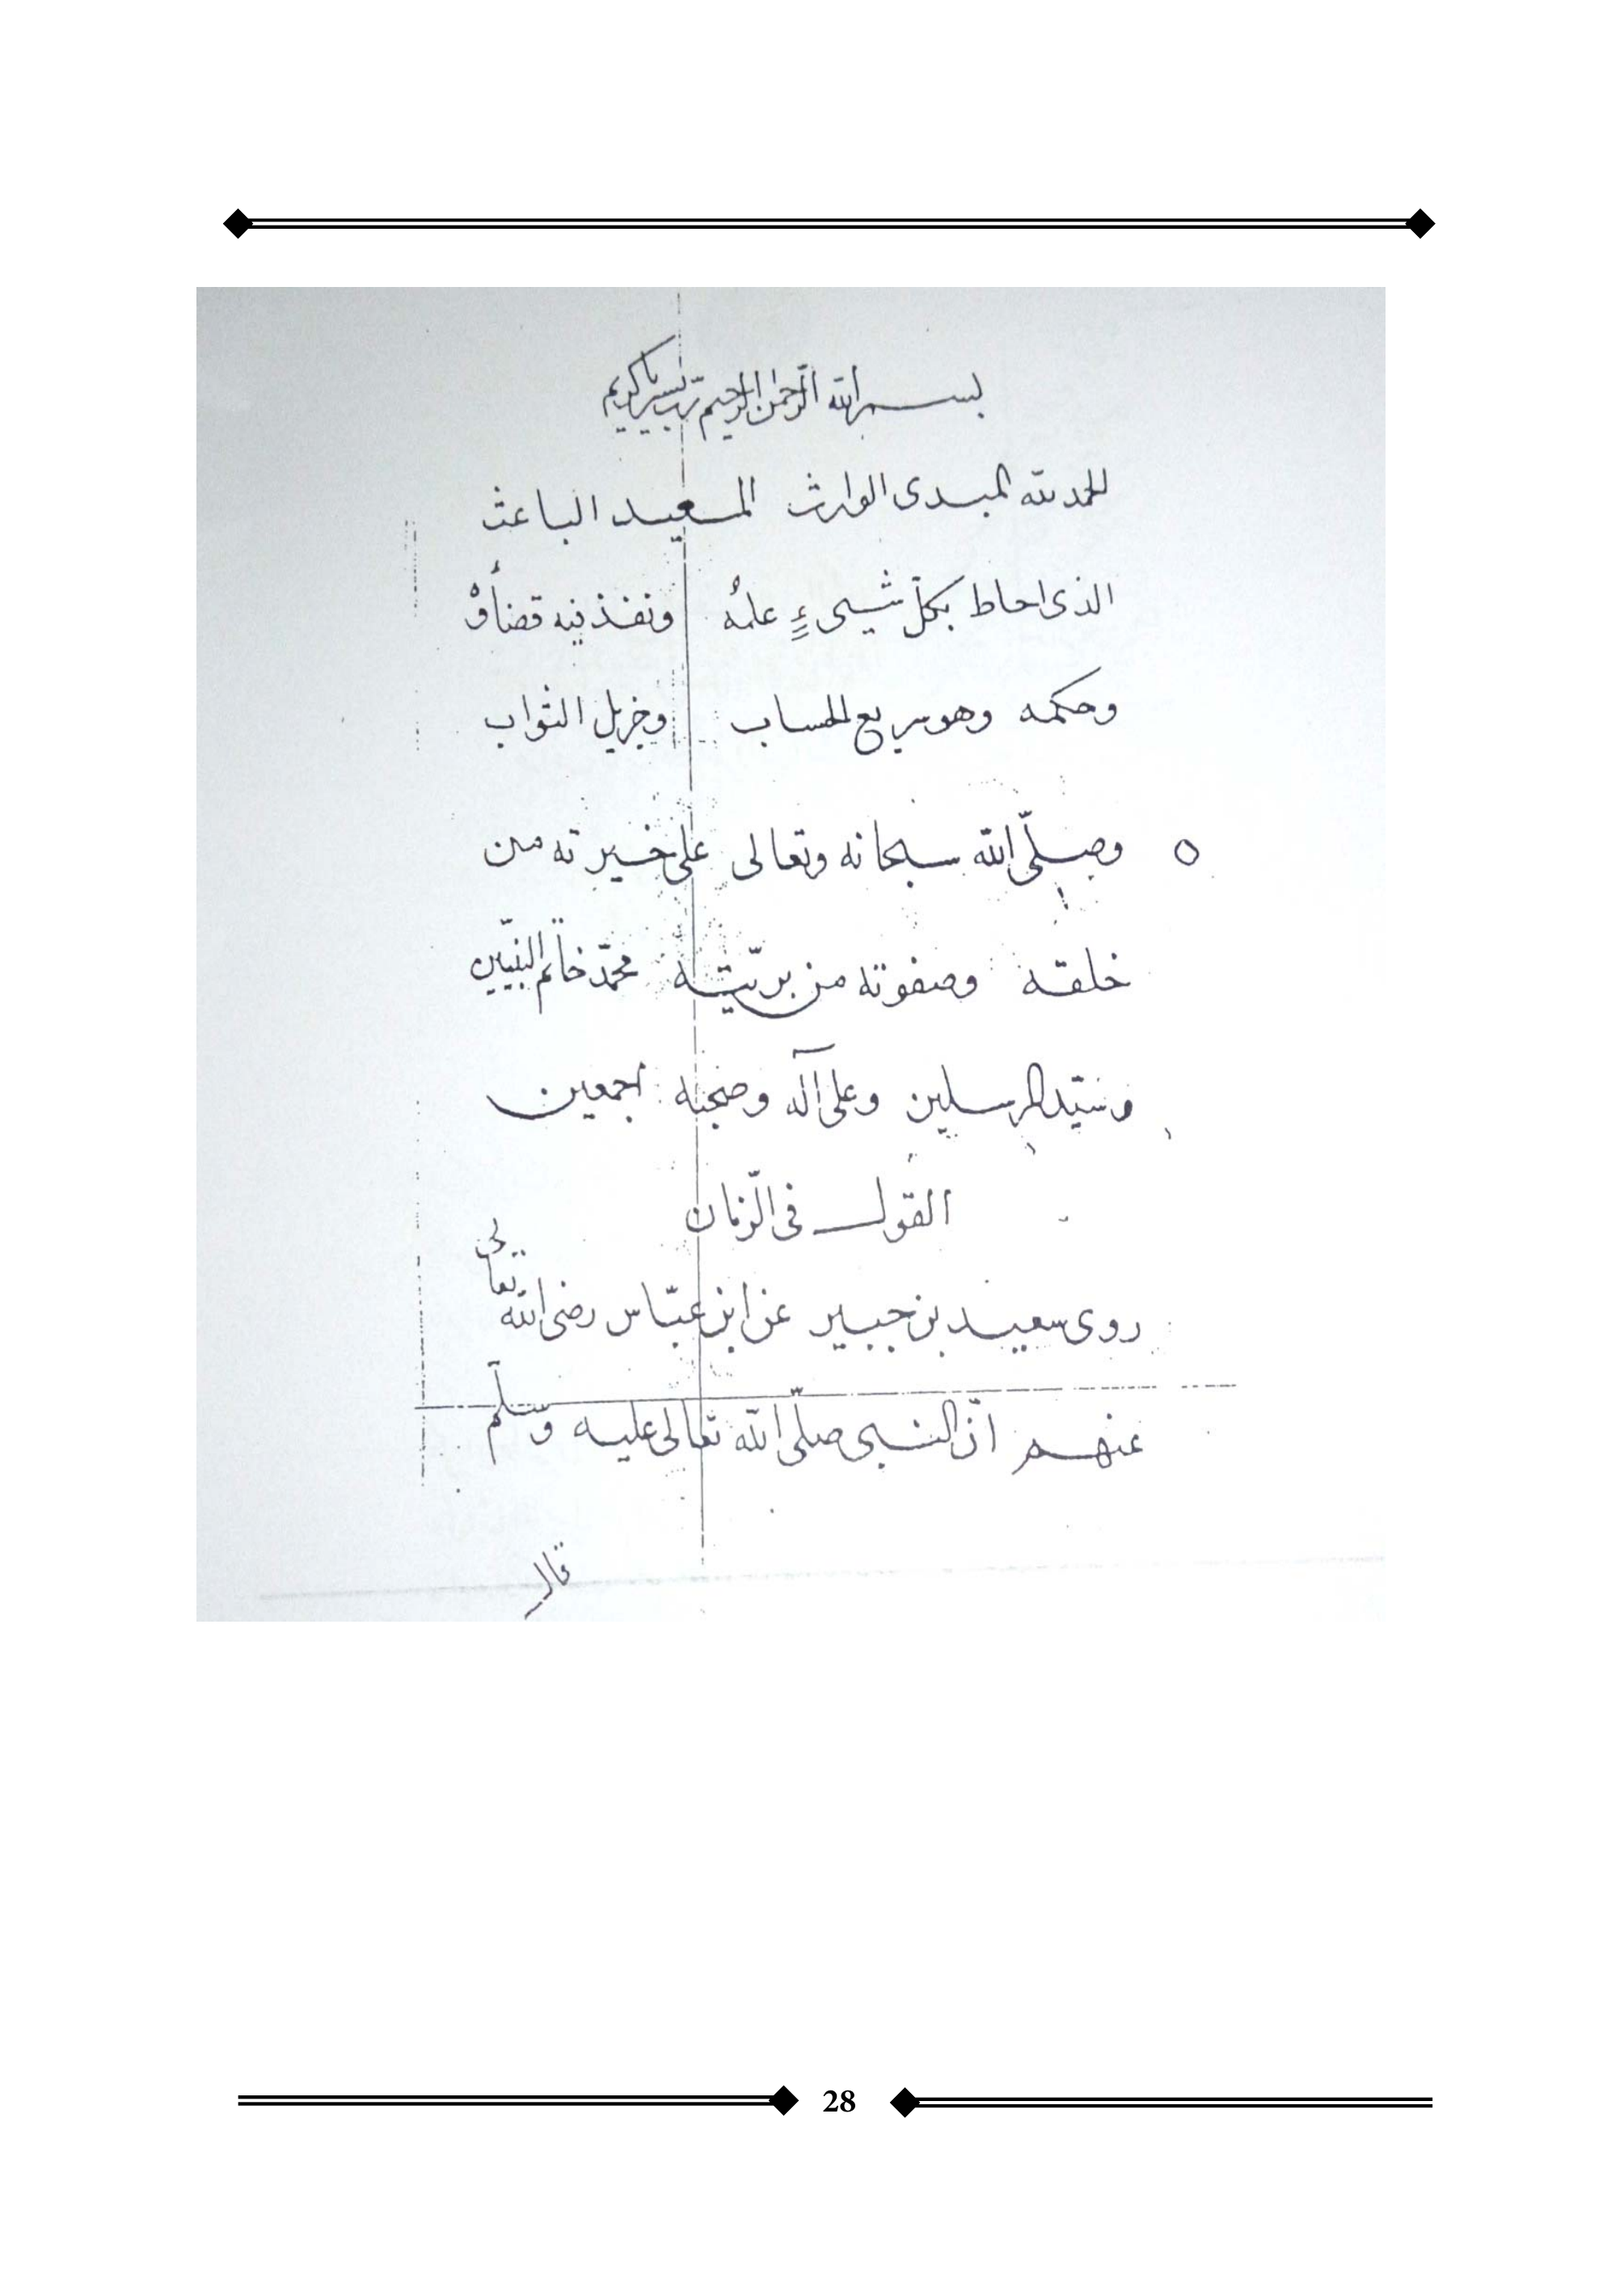 بسم الله الرّحمن الرّحيم ربّ يسّر يا كريم
الحمد لله المبدى الوارث المعيد الباعث
الذى احاط بكلّ شيىءٍ علمُه ونفذ فيه قضأوْ
وحكمه وهو سريع الحساب وجزيل الثواب
وصلّى الله سبحانه وتعالى على خيرته من
خلقه وصفوته من بريّته محمّد خاتم النبيّين
وسيّد المرسلين وعلى آله وصحبه اجمعين
القول فى الزّمان
روى سعيد بن جبير عن ابن عبّاس رضى الله تعالى
عنهم انّ النبى صلّى الله تعالى عليه وسلّم
قال
28